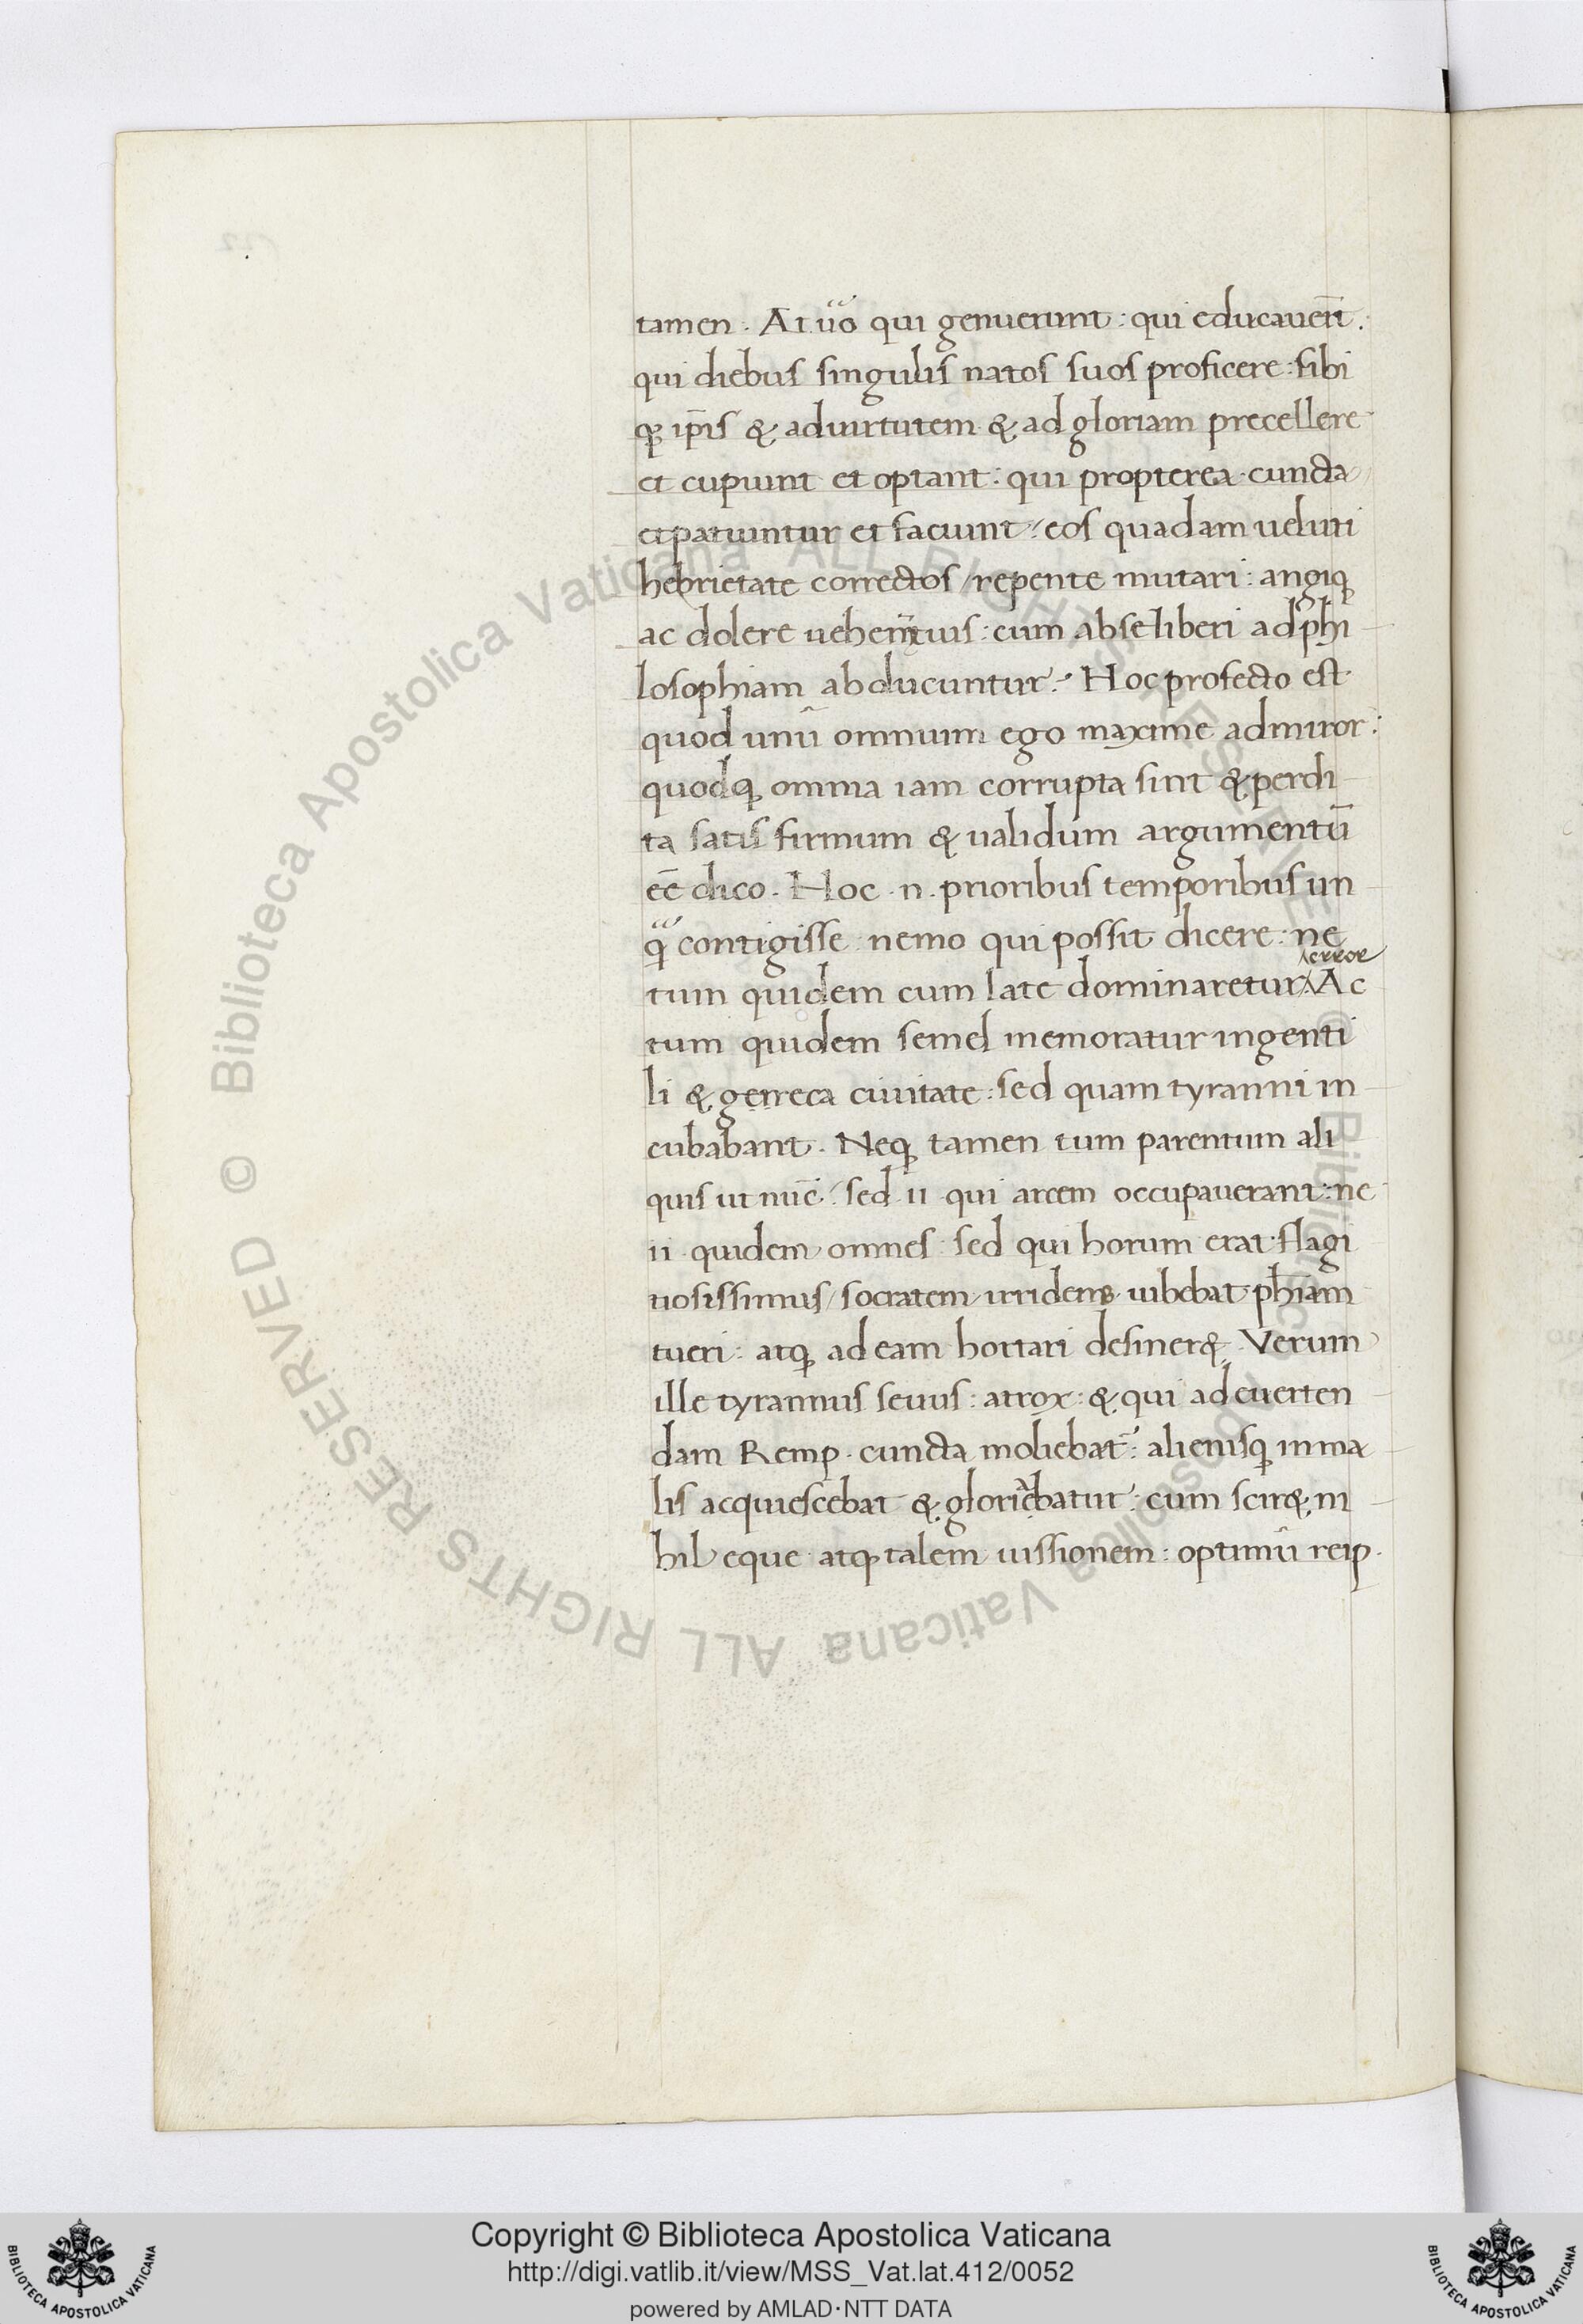 tamen. At ūo qui genuerunt: qui educauerūt.
qui diebus singulis natos suos proficere: sibi
q; ip̄is & aduirtutem & ad gloriam precellere
et cupiunt et optant: qui propterea cuncta
et patiuntur et faciunt: eos quadam ueluti
hebrietate correctos / repente mutari: angiq;
ac dolere uehementius: cum abse liberi ad phi
losophiam abducuntur. Hoc profecto est
quod unū omnium ego maxime admiror:
quodq; omnia iam corrupta sint & perdi
ta satis firmum & ualidum argumentū
eē dico. Hoc .n. prioribus temporibus un
q̄ contigisse nemo qui possit dicere: ne
error
tum quidem cum late dominaretur. Ac
tum quidem semel memoratur in genti
li & gerreca ciuitate: sed quam tyranni in
cubabant. Neq; tamen tum parentum ali
quis ut nūc: sed ii qui arcem occupauerant: ne
ii quidem omnes sed qui horum erat flagi
tiosissimus / socratem irridens iubebat ph̄iam
tueri: atq; ad eam hortari desiner&. Verum
ille tyrannus seuus: atrox: & qui ad euerten
dam Remp. cuncta moliebat: alienisq; in ma
lis acquiescebat & gloriebatur: cum scir& ni
hil eque atq; talem uissionem: optimū reip.
© Biblioteca Apostolica Vaticana ALL RIGHTS RESERVED © Biblioteca Apostolica Vaticana ALL RIGHTS RESERVED
BIBLIOTECA APOSTOLICA VATICANA
Copyright © Biblioteca Apostolica Vaticana
http://digi.vatlib.it/view/MSS_Vat.lat.412/0052
powered by AMLAD·NTT DATA
BIBLIOTECA APOSTOLICA VATICANA